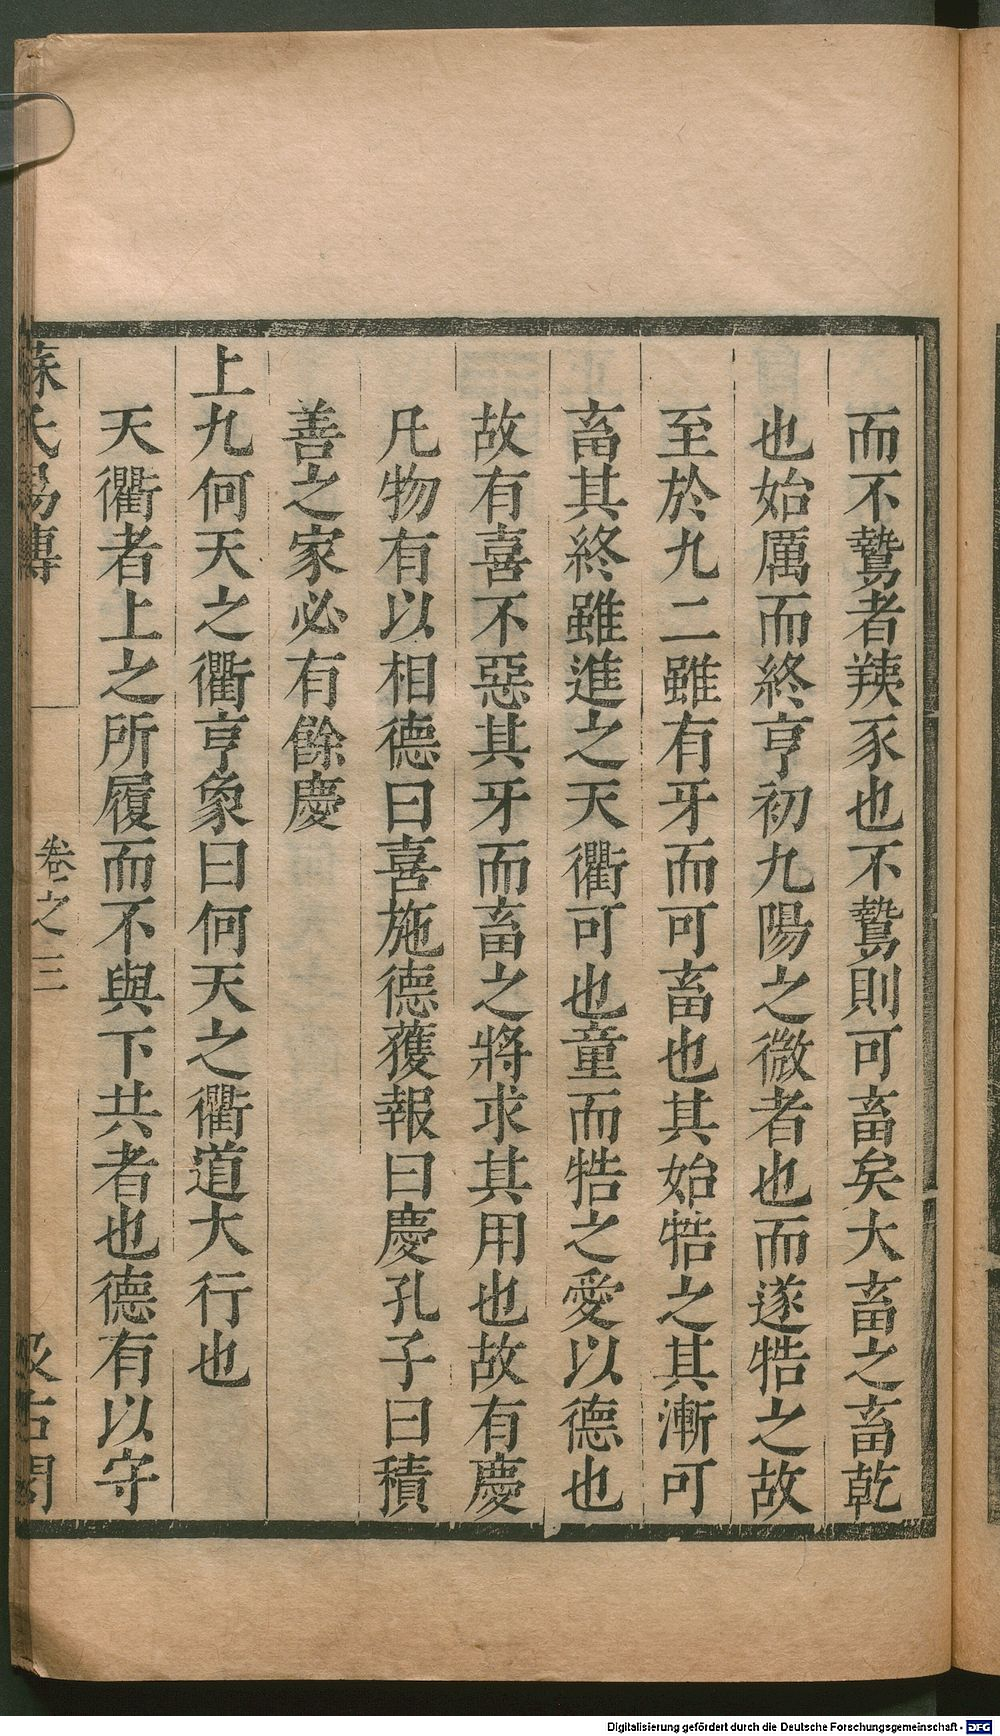 而不鷙者羠豕也不鷙則可畜矣大畜之畜乾
也始厲而終亨初九陽之微者也而遂牿之故
至於九二雖有牙而可畜也其始牿之其漸可
畜其終雖進之天衢可也童而牿之愛以德也
故有喜不惡其牙而畜之將求其用也故有慶
凡物有以相德曰喜施德獲報曰慶孔子曰積
善之家必有餘慶
上九何天之衢亨象曰何天之衢道大行也
天衢者上之所履而不與下共者也德有以守
蘇氏易傳 卷之三 汲古閣
Digitalisierung gefördert durch die Deutsche Forschungsgemeinschaft - DFG